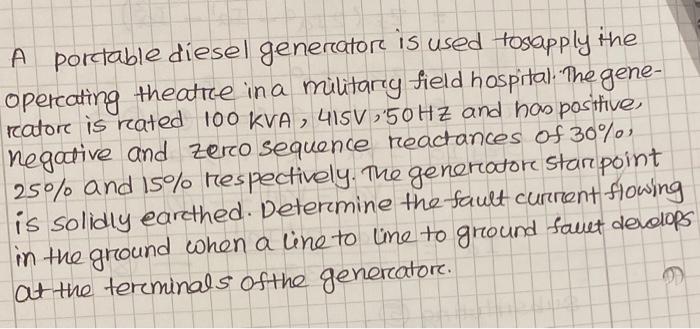 A portable diesel generator is used tosapply the
operating theatre in a military field hospital. The gene-
rator is rated 100 KVA, 415V, 50HZ and has positive,
negative and zero sequence reactances of 30%,
25% and 15% respectively. The generator star point
is solidly earthed. Determine the fault current flowing
in the ground when a line to line to ground fault develops
at the terminals ofthe generator.